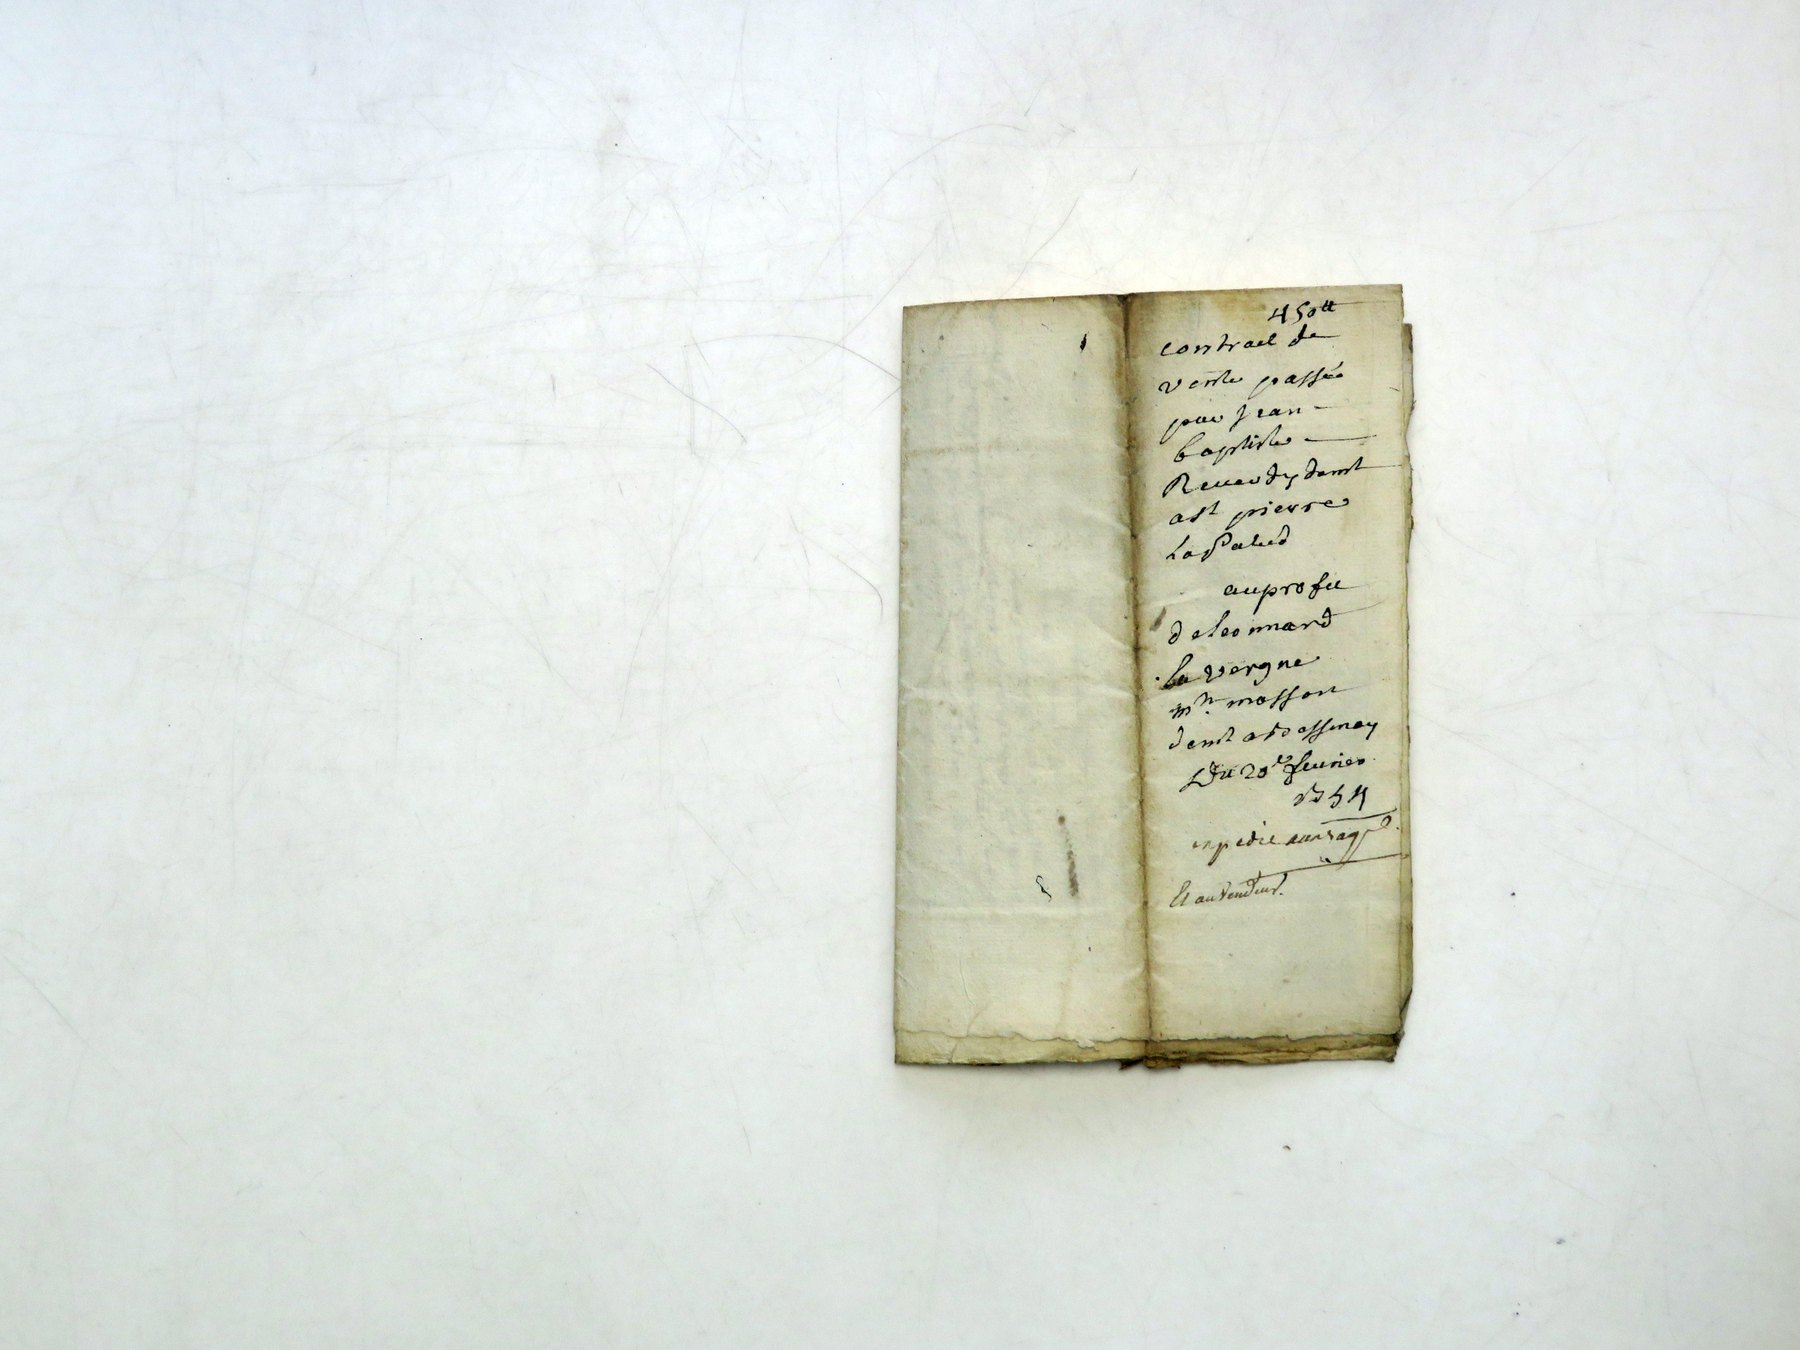 450tt
contract de
vente passée
par Jean
baptiste
Reverdy demt
a st pierre
La Palud
au profit
de leonnard
la vergne
mtre masson
demt a Bessenay
Du 20e fevrier
1754
expedié
Et au vendeur.